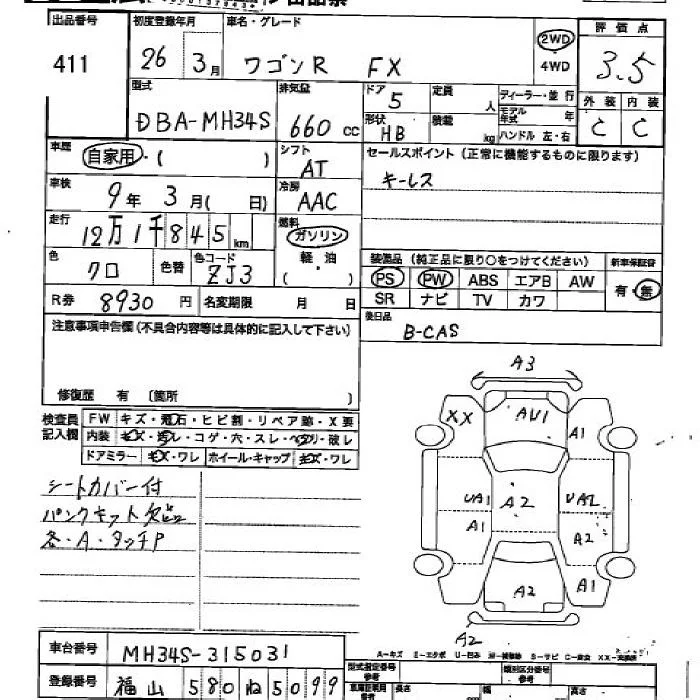 出品番号 411
初度登録年月 26年 3月
車名・グレード ワゴンR FX
2WD
4WD
評価点 3.5
外装 内装
C C
型式 DBA-MH34S
排気量 660cc
ドア 5
定員 人
形状 HB
積載 kg
ディーラー・並行
モデル年式 年
ハンドル 左・右
車歴 自家用・( )
シフト AT
セールスポイント(正常に機能するものに限ります)
キーレス
車検 9年 3月( 日)
冷房 AAC
走行 12万1千845km
燃料 ガソリン
軽・油
( )
色 クロ
色替
色コード ZJ3
装備品(純正品に限り○をつけてください)
新車保証書
PS PW ABS エアB AW
有・無
SR ナビ TV カワ
R券 8930円
名変期限 月 日
後日品
B-CAS
注意事項申告欄(不具合内容等は具体的に記入して下さい)
修復歴 有 〔箇所 〕
検査員記入欄
FW キズ・飛石・ヒビ割・リペア跡・X要
内装 キズ・汚レ・コゲ・穴・スレ・ヘタリ・破レ
ドアミラー キズ・ワレ ホイール・キャップ キズ・ワレ
シートカバー付
パンクキット欠品
各・A・タッチP
A3
XX AU1 A1
UA1 A2 UA2
A1 A2
A2 A1
A2
A-キズ E-エクボ U-凹み W-補修跡 S-サビ C-腐食 XX-交換済
車台番号 MH34S-315031
型式指定番号 参考
類別区分番号 参考
登録番号 福山 580 ね 5099
長さ 幅 高さ